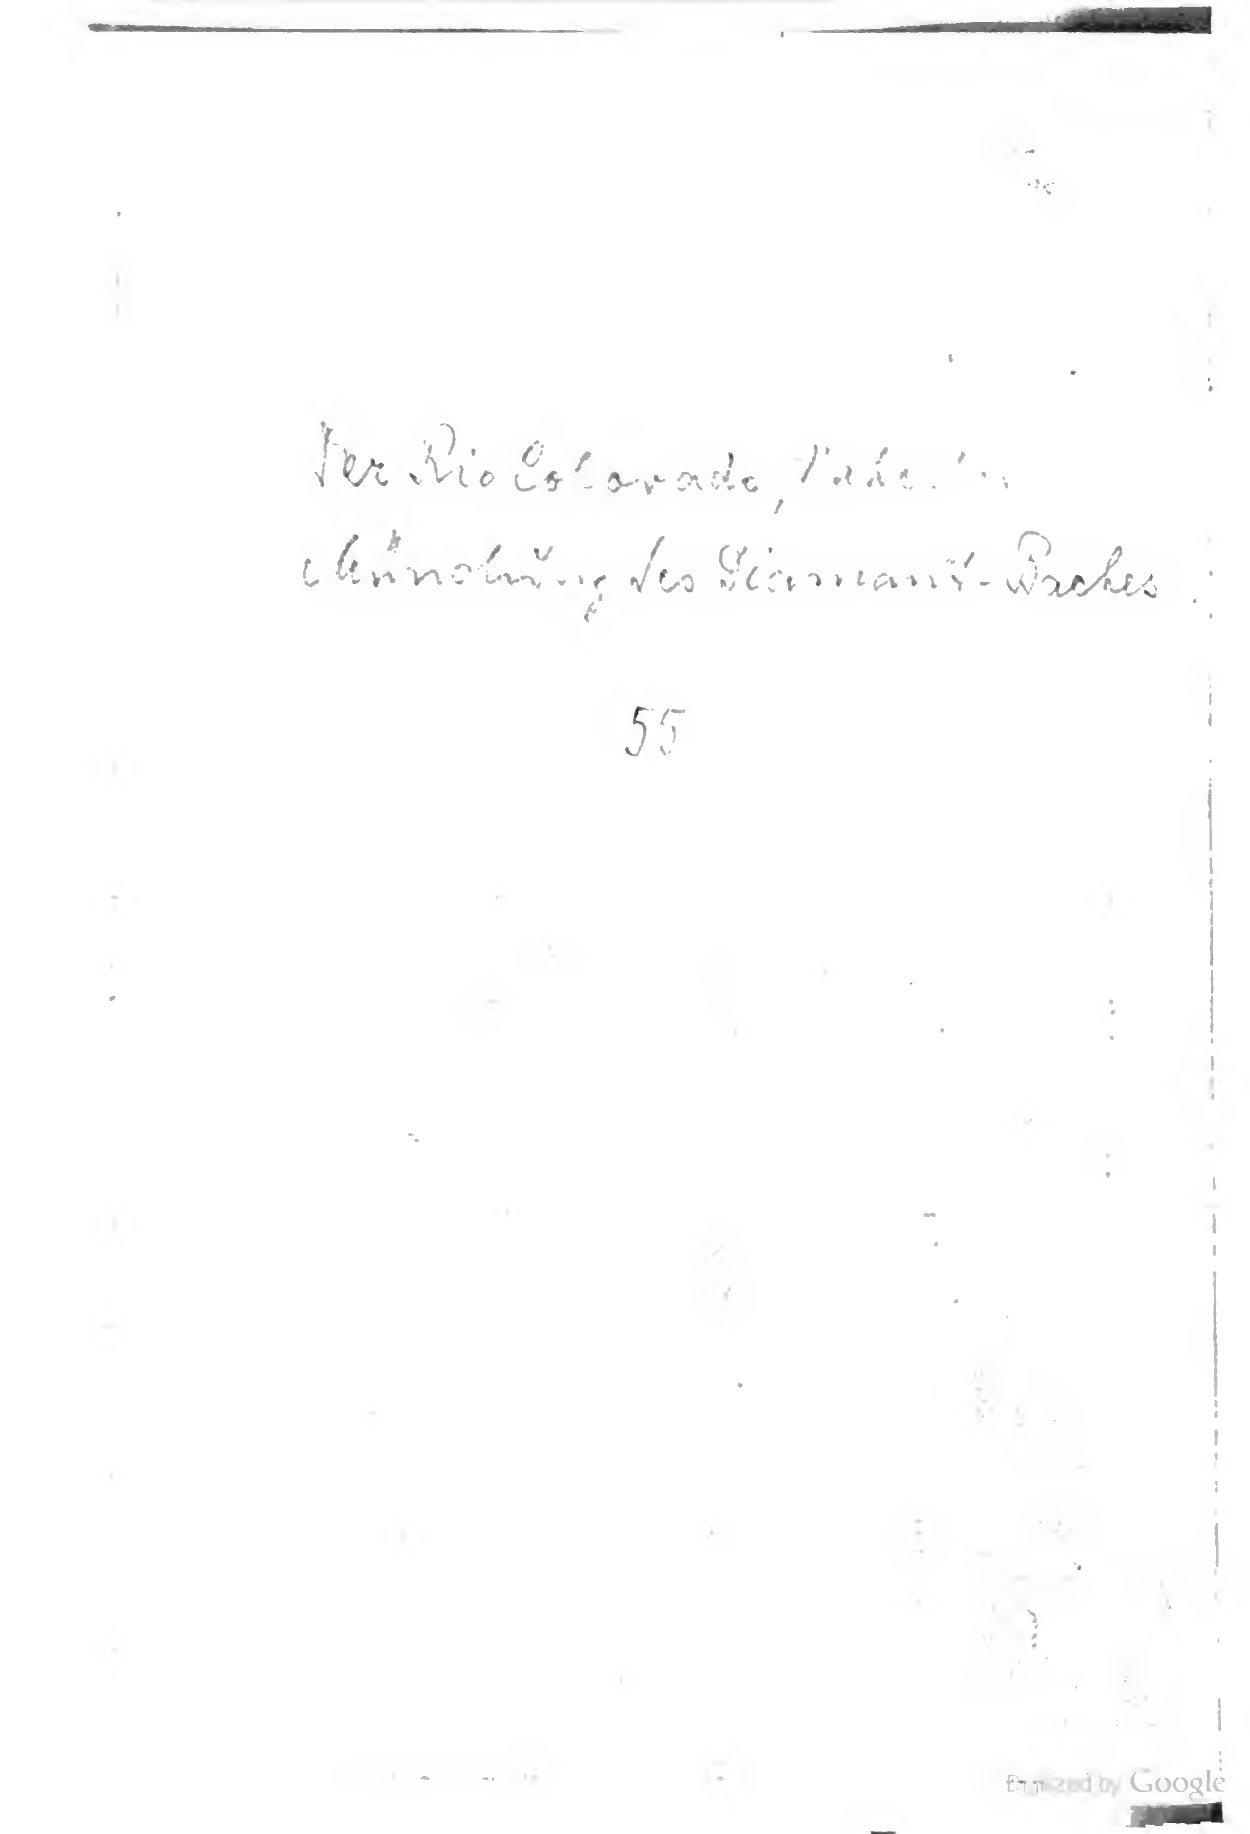 Der Rio Colorado, nahe der
Mündung des Diamant-Baches
55
Digitized by Google